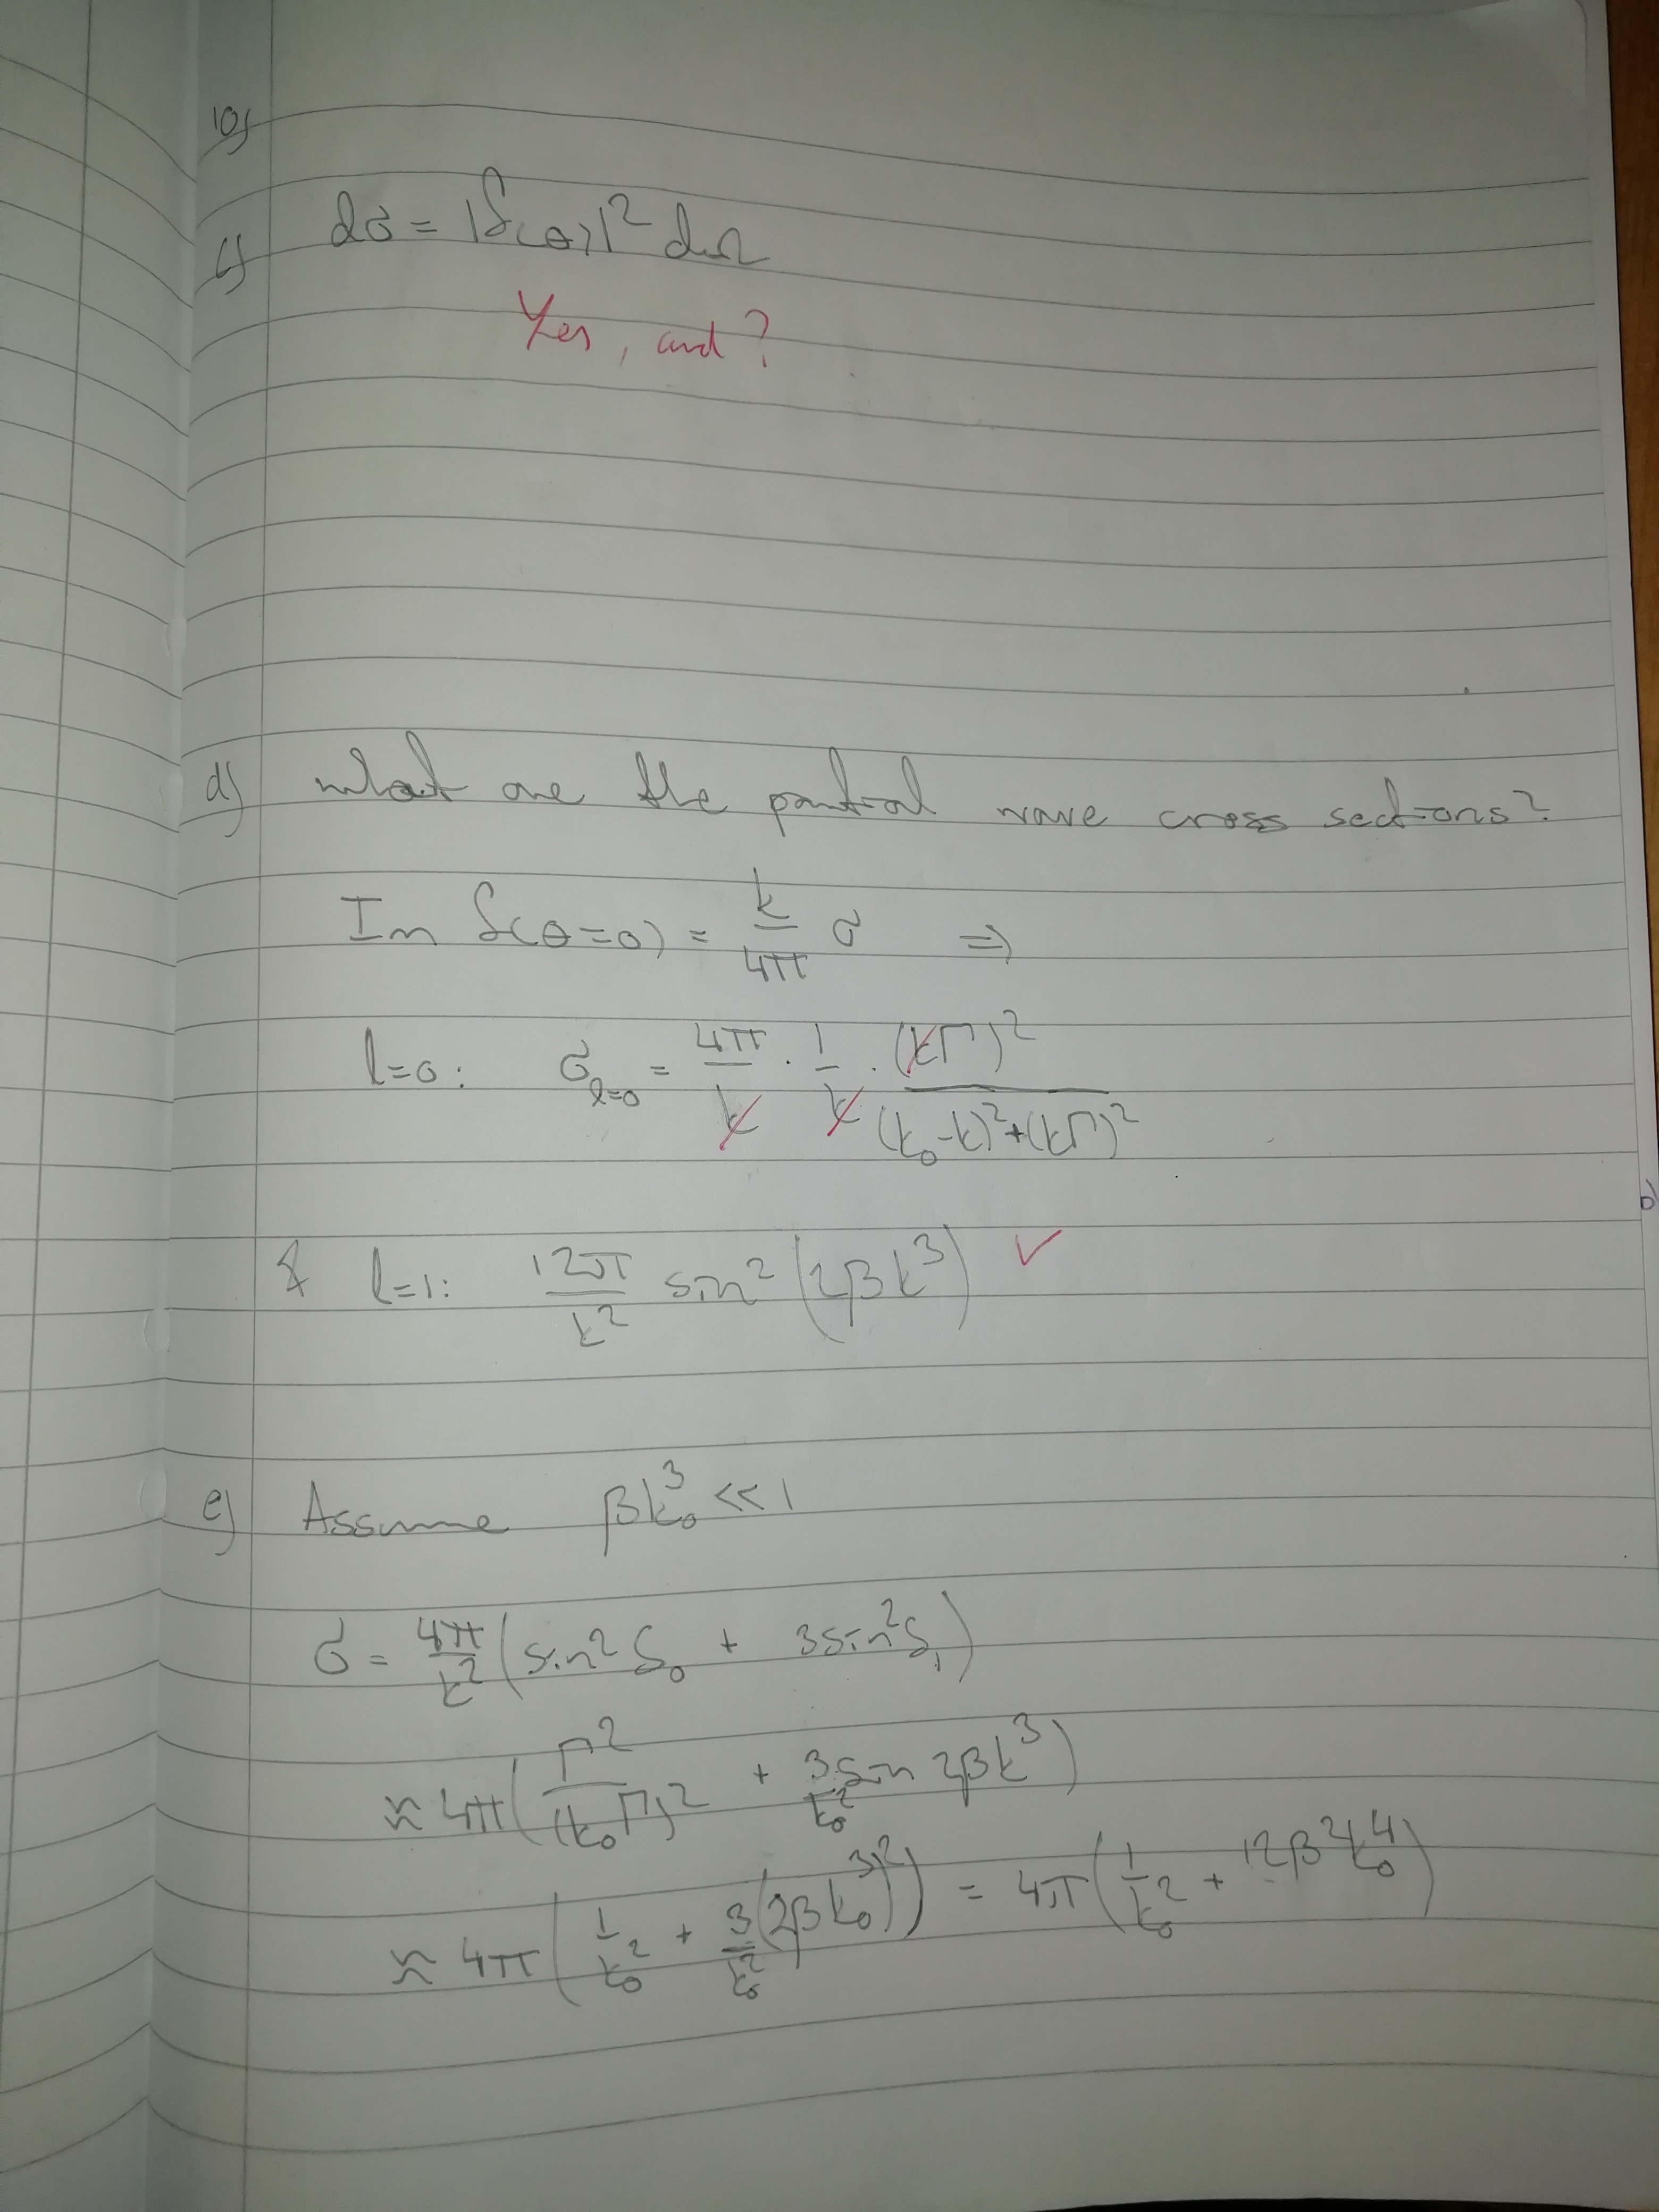 10)
c) dσ = |f(θ)|² dΩ
Yes, and?
d) What are the partial wave cross sections?
Im f(θ=0) = k/4π σ ⇒
l=0: σ_{l=0} = 4π/k · 1/k · (kΓ)²/((k₀-k)²+(kΓ)²)
& l=1: 12π/k² sin²(2βk³) ✓
e) Assume βk₀³ << 1
σ = 4π/k² (sin²δ₀ + 3sin²δ₁)
≈ 4π(Γ²/(k₀Γ)² + 3/k₀² sin 2βk³)
≈ 4π(1/k₀² + 3/k₀² (2βk₀³)²) = 4π(1/k₀² + 12β²k₀⁴)